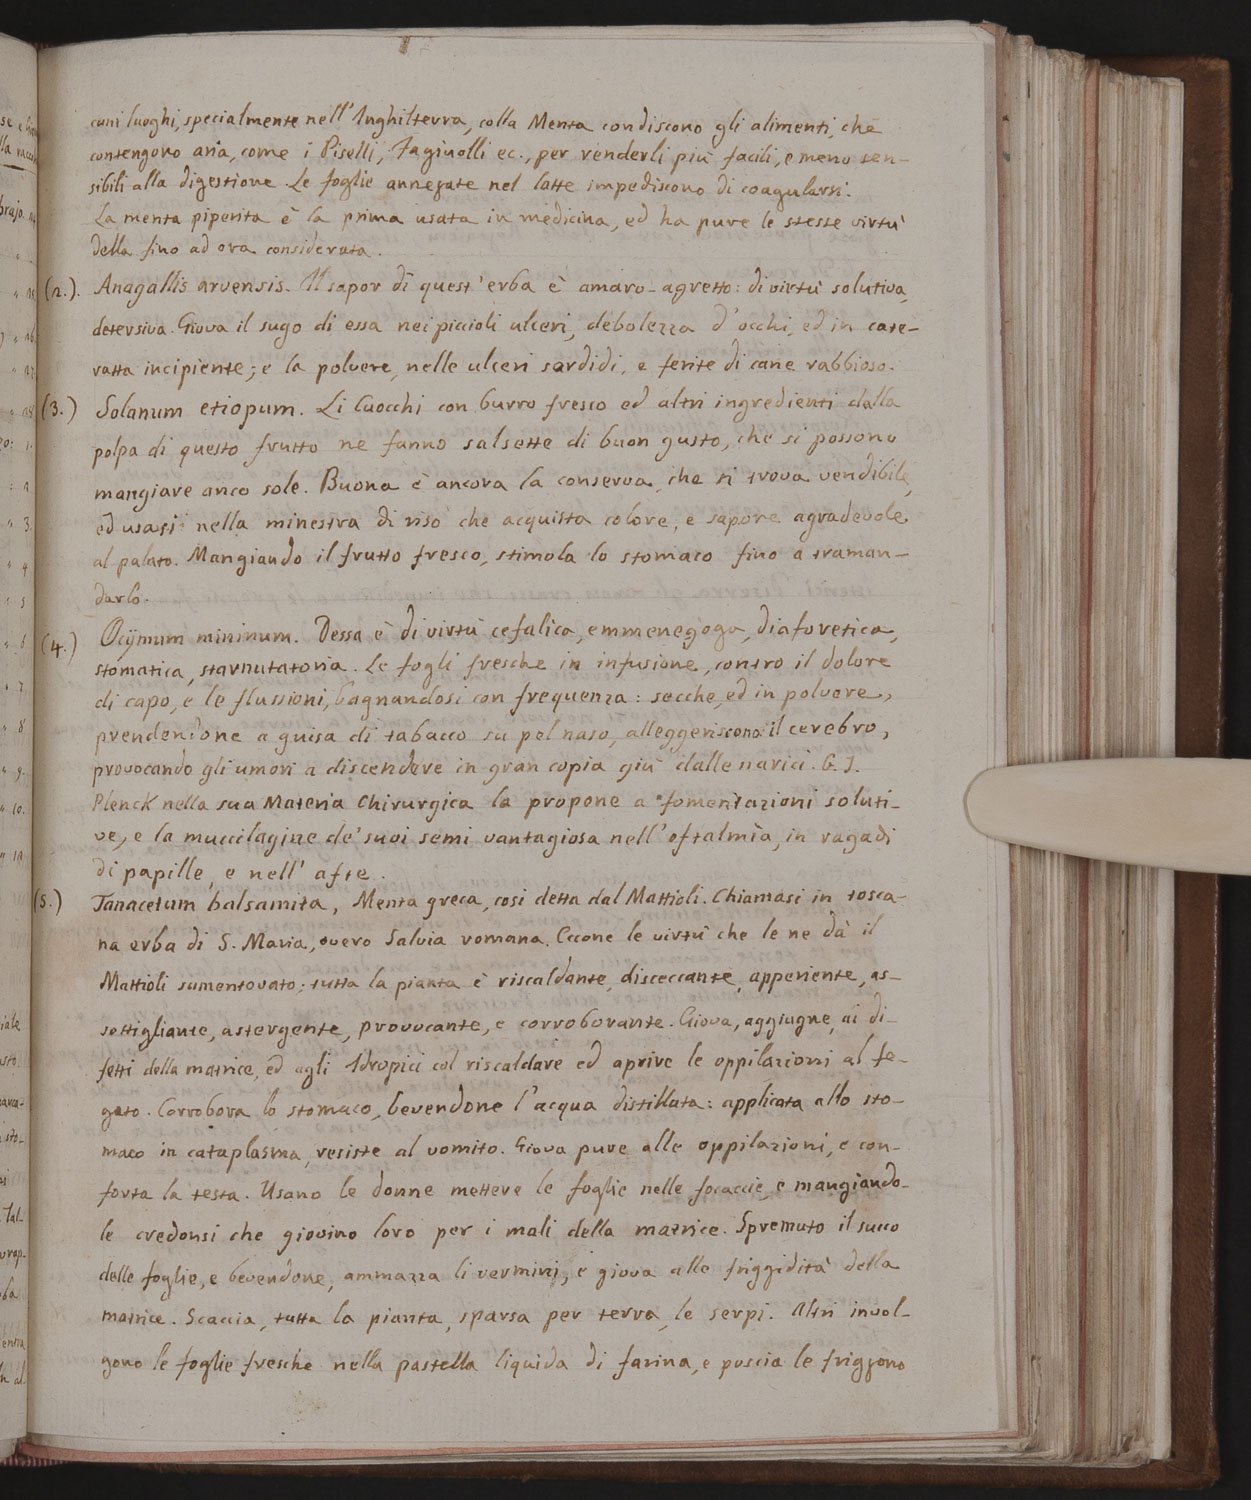 cuni luoghi, specialmente nell'Inghilterra, colla Menta condiscono gli alimenti, che
contengono aria, come i Piselli, Fagiuolli ec., per renderli più facili, e meno sen-
sibili alla digestione. Le foglie annegate nel latte impediscono di coagularsi.
La menta piperita è la prima usata in medicina, ed ha pure le stesse virtù
della fino ad ora considerata.
(2.). Anagallis arvensis. Il sapor di quest'erba è amaro-agretto: di virtù solutiva,
detersiva. Giova il sugo di essa nei piccioli ulceri, debolezza d'occhi, ed in cate-
ratta incipiente; e la polvere, nelle ulceri sordidi, e ferite di cane rabbioso.
(3.) Solanum etiopum. Li Cuocchi con burro fresco ed altri ingredienti dalla
polpa di questo frutto ne fanno salsette di buon gusto, che si possono
mangiare anco sole. Buona è ancora la conserva, che si trova vendibile,
ed usasi nella minestra di riso che acquista colore, e sapore agradevole
al palato. Mangiando il frutto fresco, stimola lo stomaco fino a traman-
darlo.
(4.) Ocijmum minimum. Dessa è di virtù cefalica, emmenegoga, diaforetica,
stomatica, starnutatoria. Le fogli fresche in infusione, contro il dolore
di capo, e le flussioni, bagnandosi con frequenza: secche, ed in polvere,
prendendone a guisa di tabacco su pel naso, alleggeriscono il cerebro,
provocando gli umori a discendere in gran copia giù dalle narici. G. J.
Plenck nella sua Materia Chirurgica la propone a fomentazioni soluti-
ve, e la muccilagine de' suoi semi vantagiosa nell'oftalmia, in ragadi
di papille, e nell'afte.
(5.) Tanacetum balsamita, Menta greca, così detta dal Mattioli. Chiamasi in tosca-
na erba di S. Maria, overo Salvia romana. Eccone le virtù che le ne dà il
Mattioli sumentovato: tutta la pianta è riscaldante, disceccante, apperiente, as-
sottigliante, astergente, provocante, e corroborante. Giova, aggiugne, ai di-
fetti della matrice, ed agli Idropici col riscaldare ed aprire le oppilazioni al fe-
gato. Corrobora lo stomaco, bevendone l'acqua distillata: applicata allo sto-
maco in cataplasma, resiste al vomito. Giova pure alle oppilazioni, e con-
forta la testa. Usano le donne mettere le foglie nelle focaccie, e mangiando-
le credonsi che giovino loro per i mali della matrice. Spremuto il succo
delle foglie, e bevendone, ammazza li vermini, e giova alle friggidità della
matrice. Scaccia, tutta la pianta, sparsa per terra, le serpi. Altri invol-
gono le foglie fresche nella pastella liquida di farina, e poscia le friggono